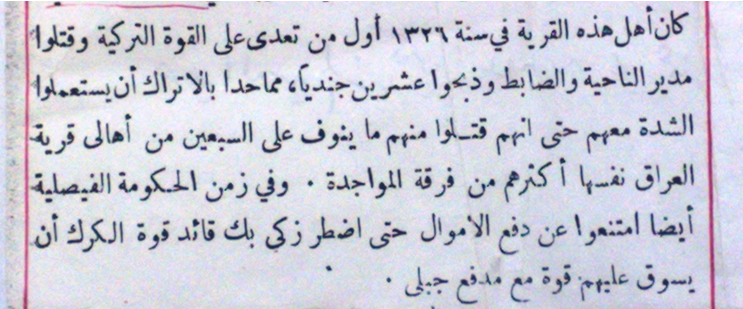 كان أهل هذه القرية في سنة ١٣٢٦ أول من تعدى على القوة التركية وقتلوا
مدير الناحية والضابط وذبحوا عشرين جندياً، مما حدا بالاتراك أن يستعملوا
الشدة معهم حتى انهم قتلوا منهم ما ينوف على السبعين من أهالى قرية
العراق نفسها أكثرهم من فرقة المواجدة . وفي زمن الحكومة الفيصلية
أيضا امتنعوا عن دفع الاموال حتى اضطر زكي بك قائد قوة الكرك أن
يسوق عليهم قوة مع مدفع جبلى .